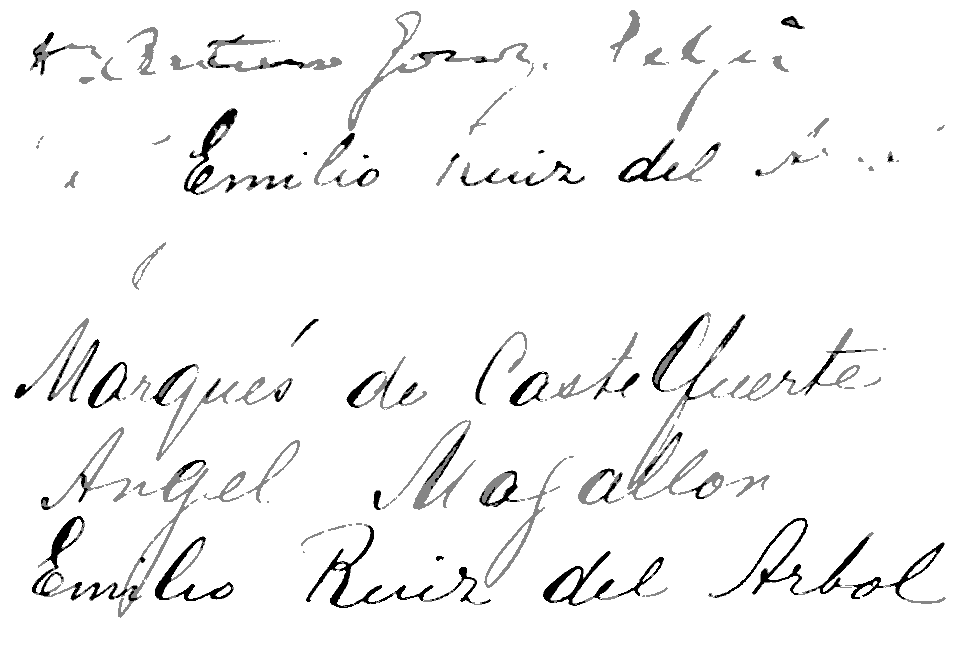 Arturo
Emilio Ruiz del
Marqués de Castelfuerte
Angel Magallon
Emilio Ruiz del Arbol